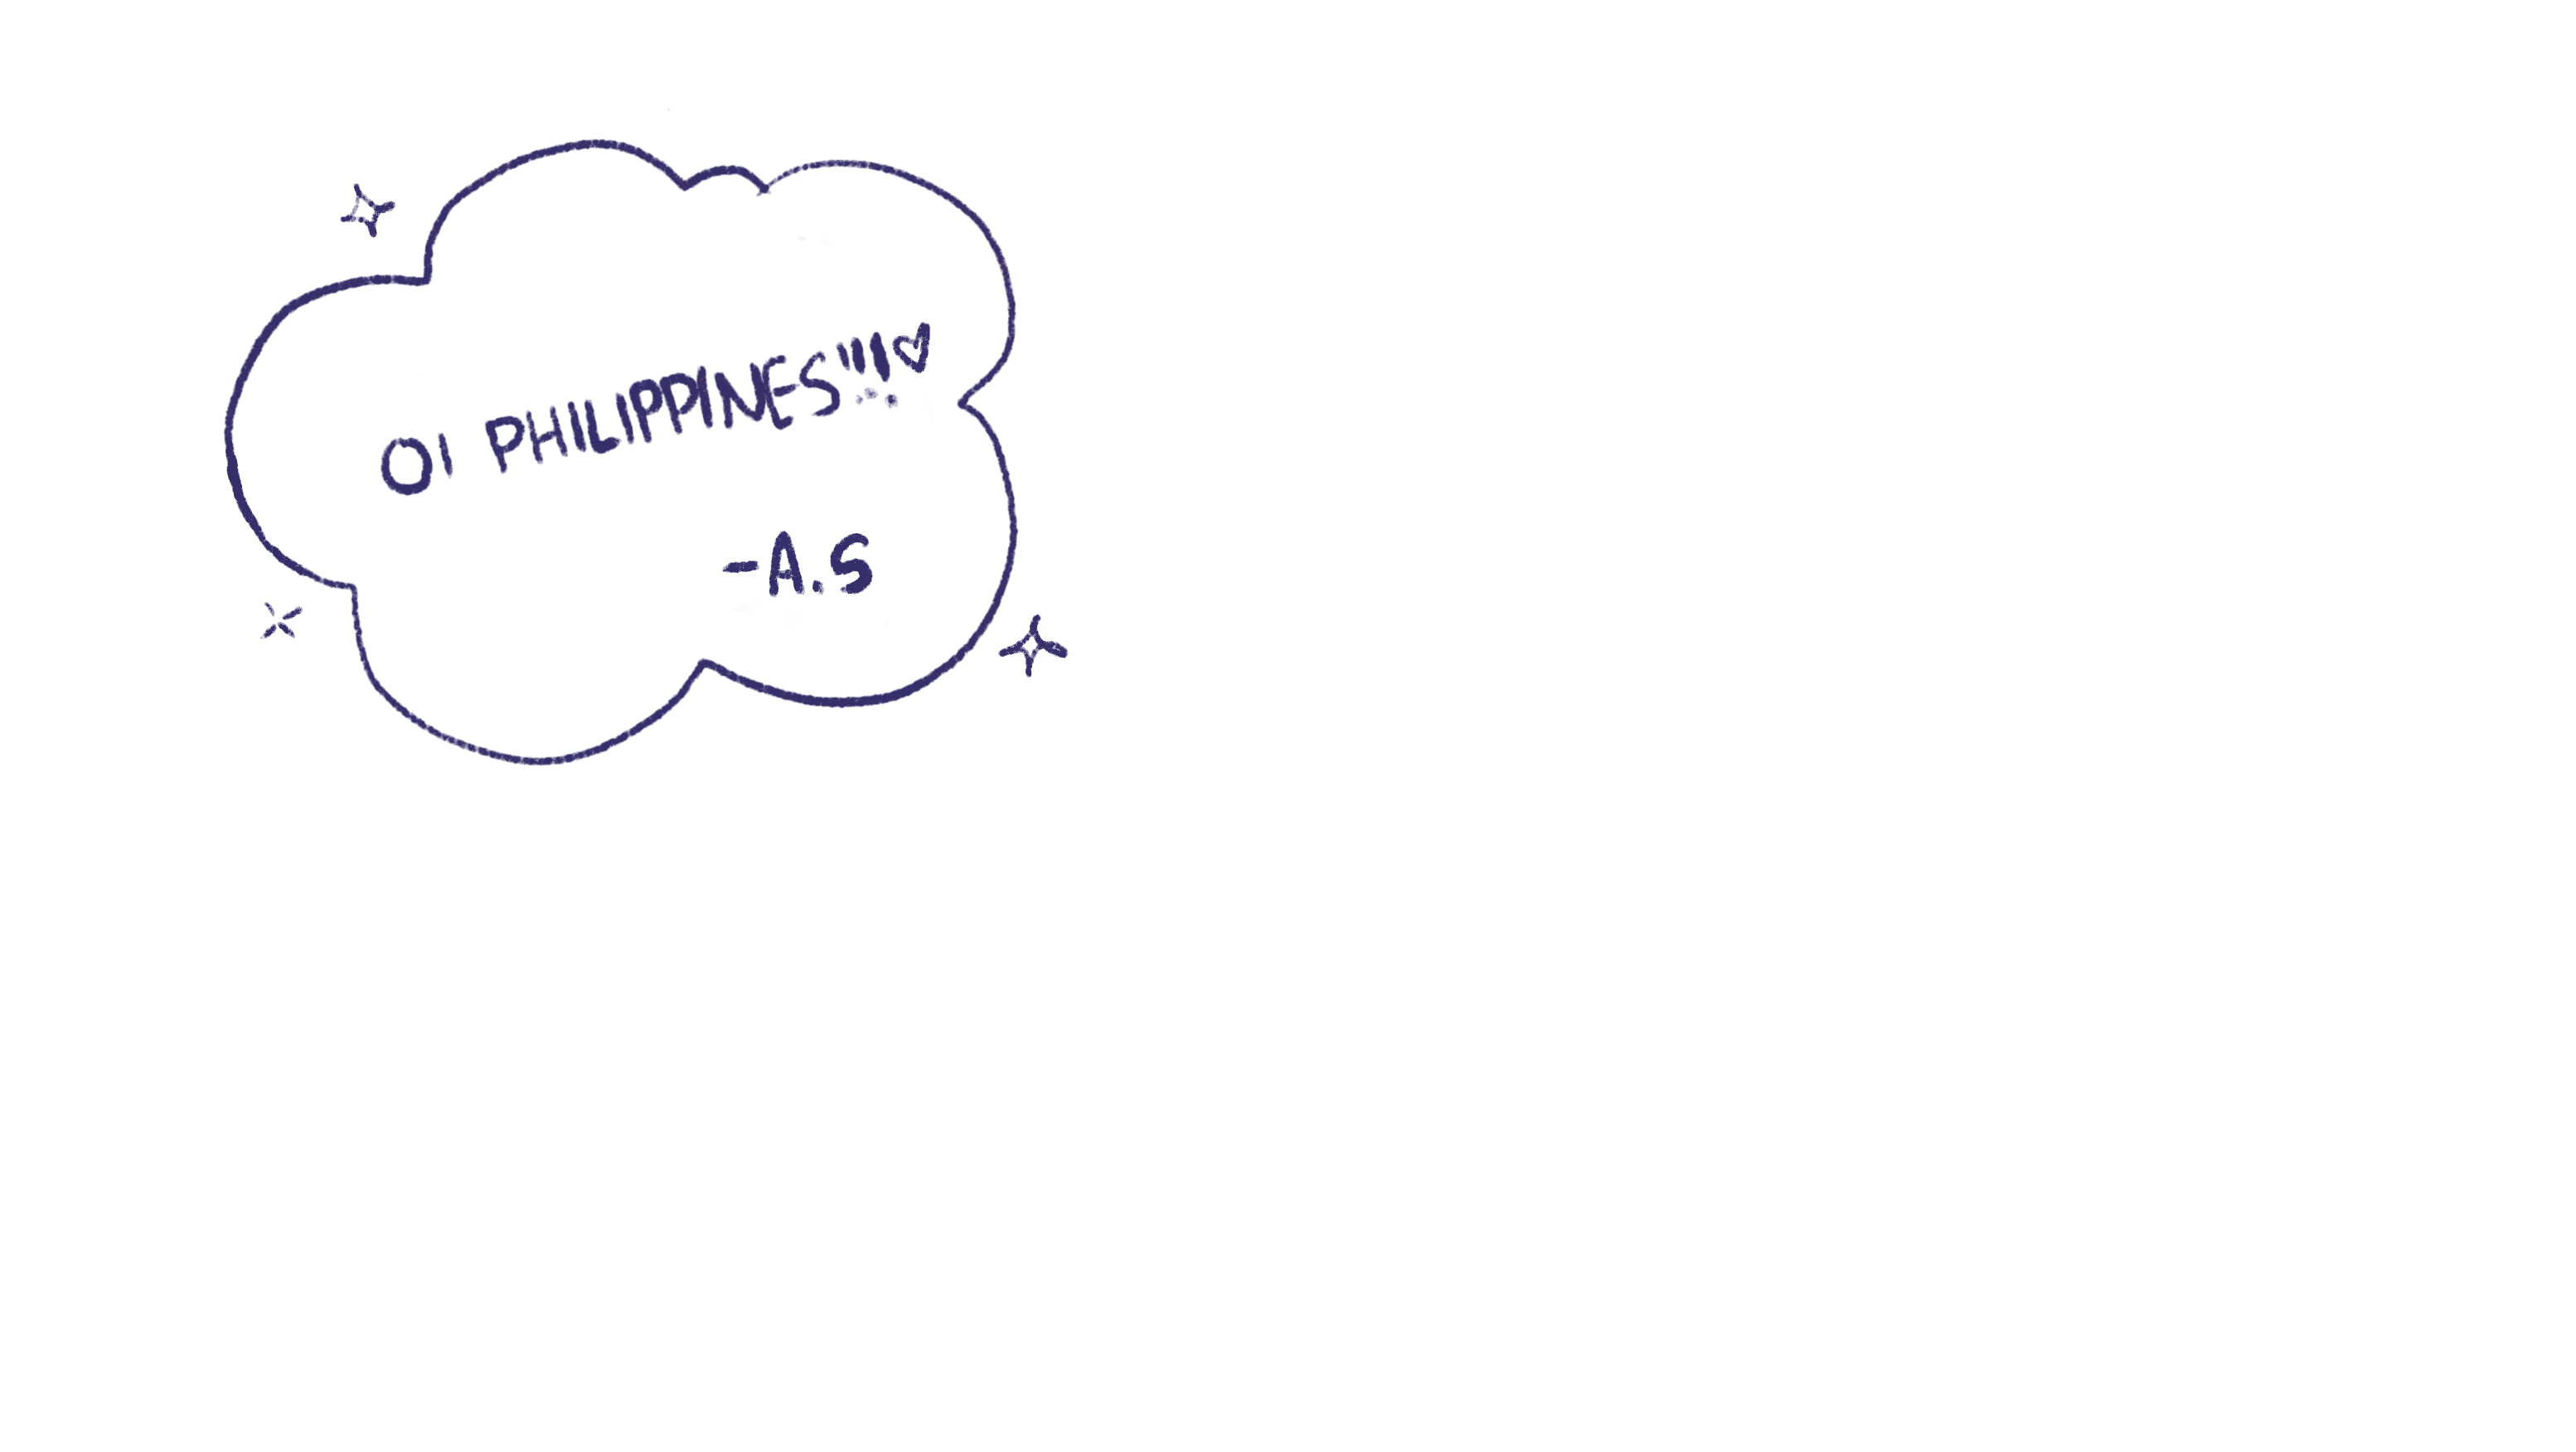 OI PHILIPPINES!!!♡
-A.S